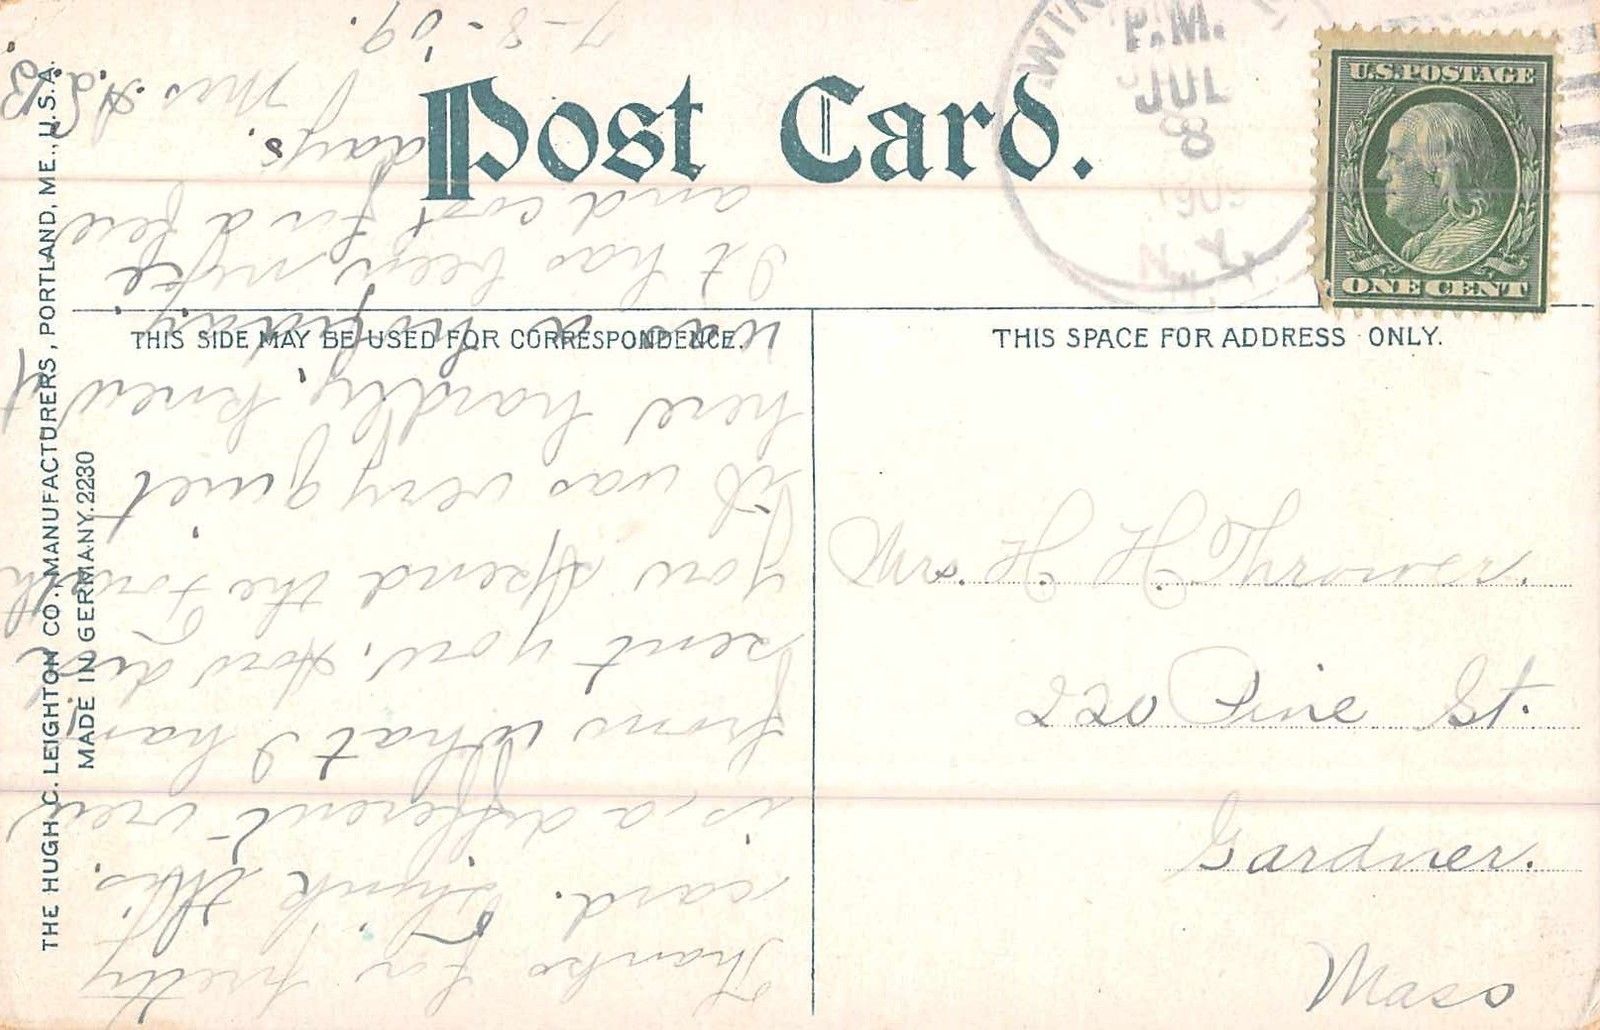 Post Card.
P.M.
JUL
8
1909
N.Y.
U.S. POSTAGE
ONE CENT
THIS SIDE MAY BE USED FOR CORRESPONDENCE.
THIS SPACE FOR ADDRESS ONLY.
THE HUGH C. LEIGHTON CO. MANUFACTURERS, PORTLAND, ME., U.S.A.
MADE IN GERMANY. 2230
Mrs. H. H. Thrower.
220 Pine St.
Gardner.
Mass
Thanks for pretty
card. Think this.
is, a different view
from what I hav
sent you. How did
you spend the Fourth
it was very quiet
here hardly, knew it
was a holiday
It has been nice
and cool for a few
days.
Mrs A.L.B.
7-8-'09.